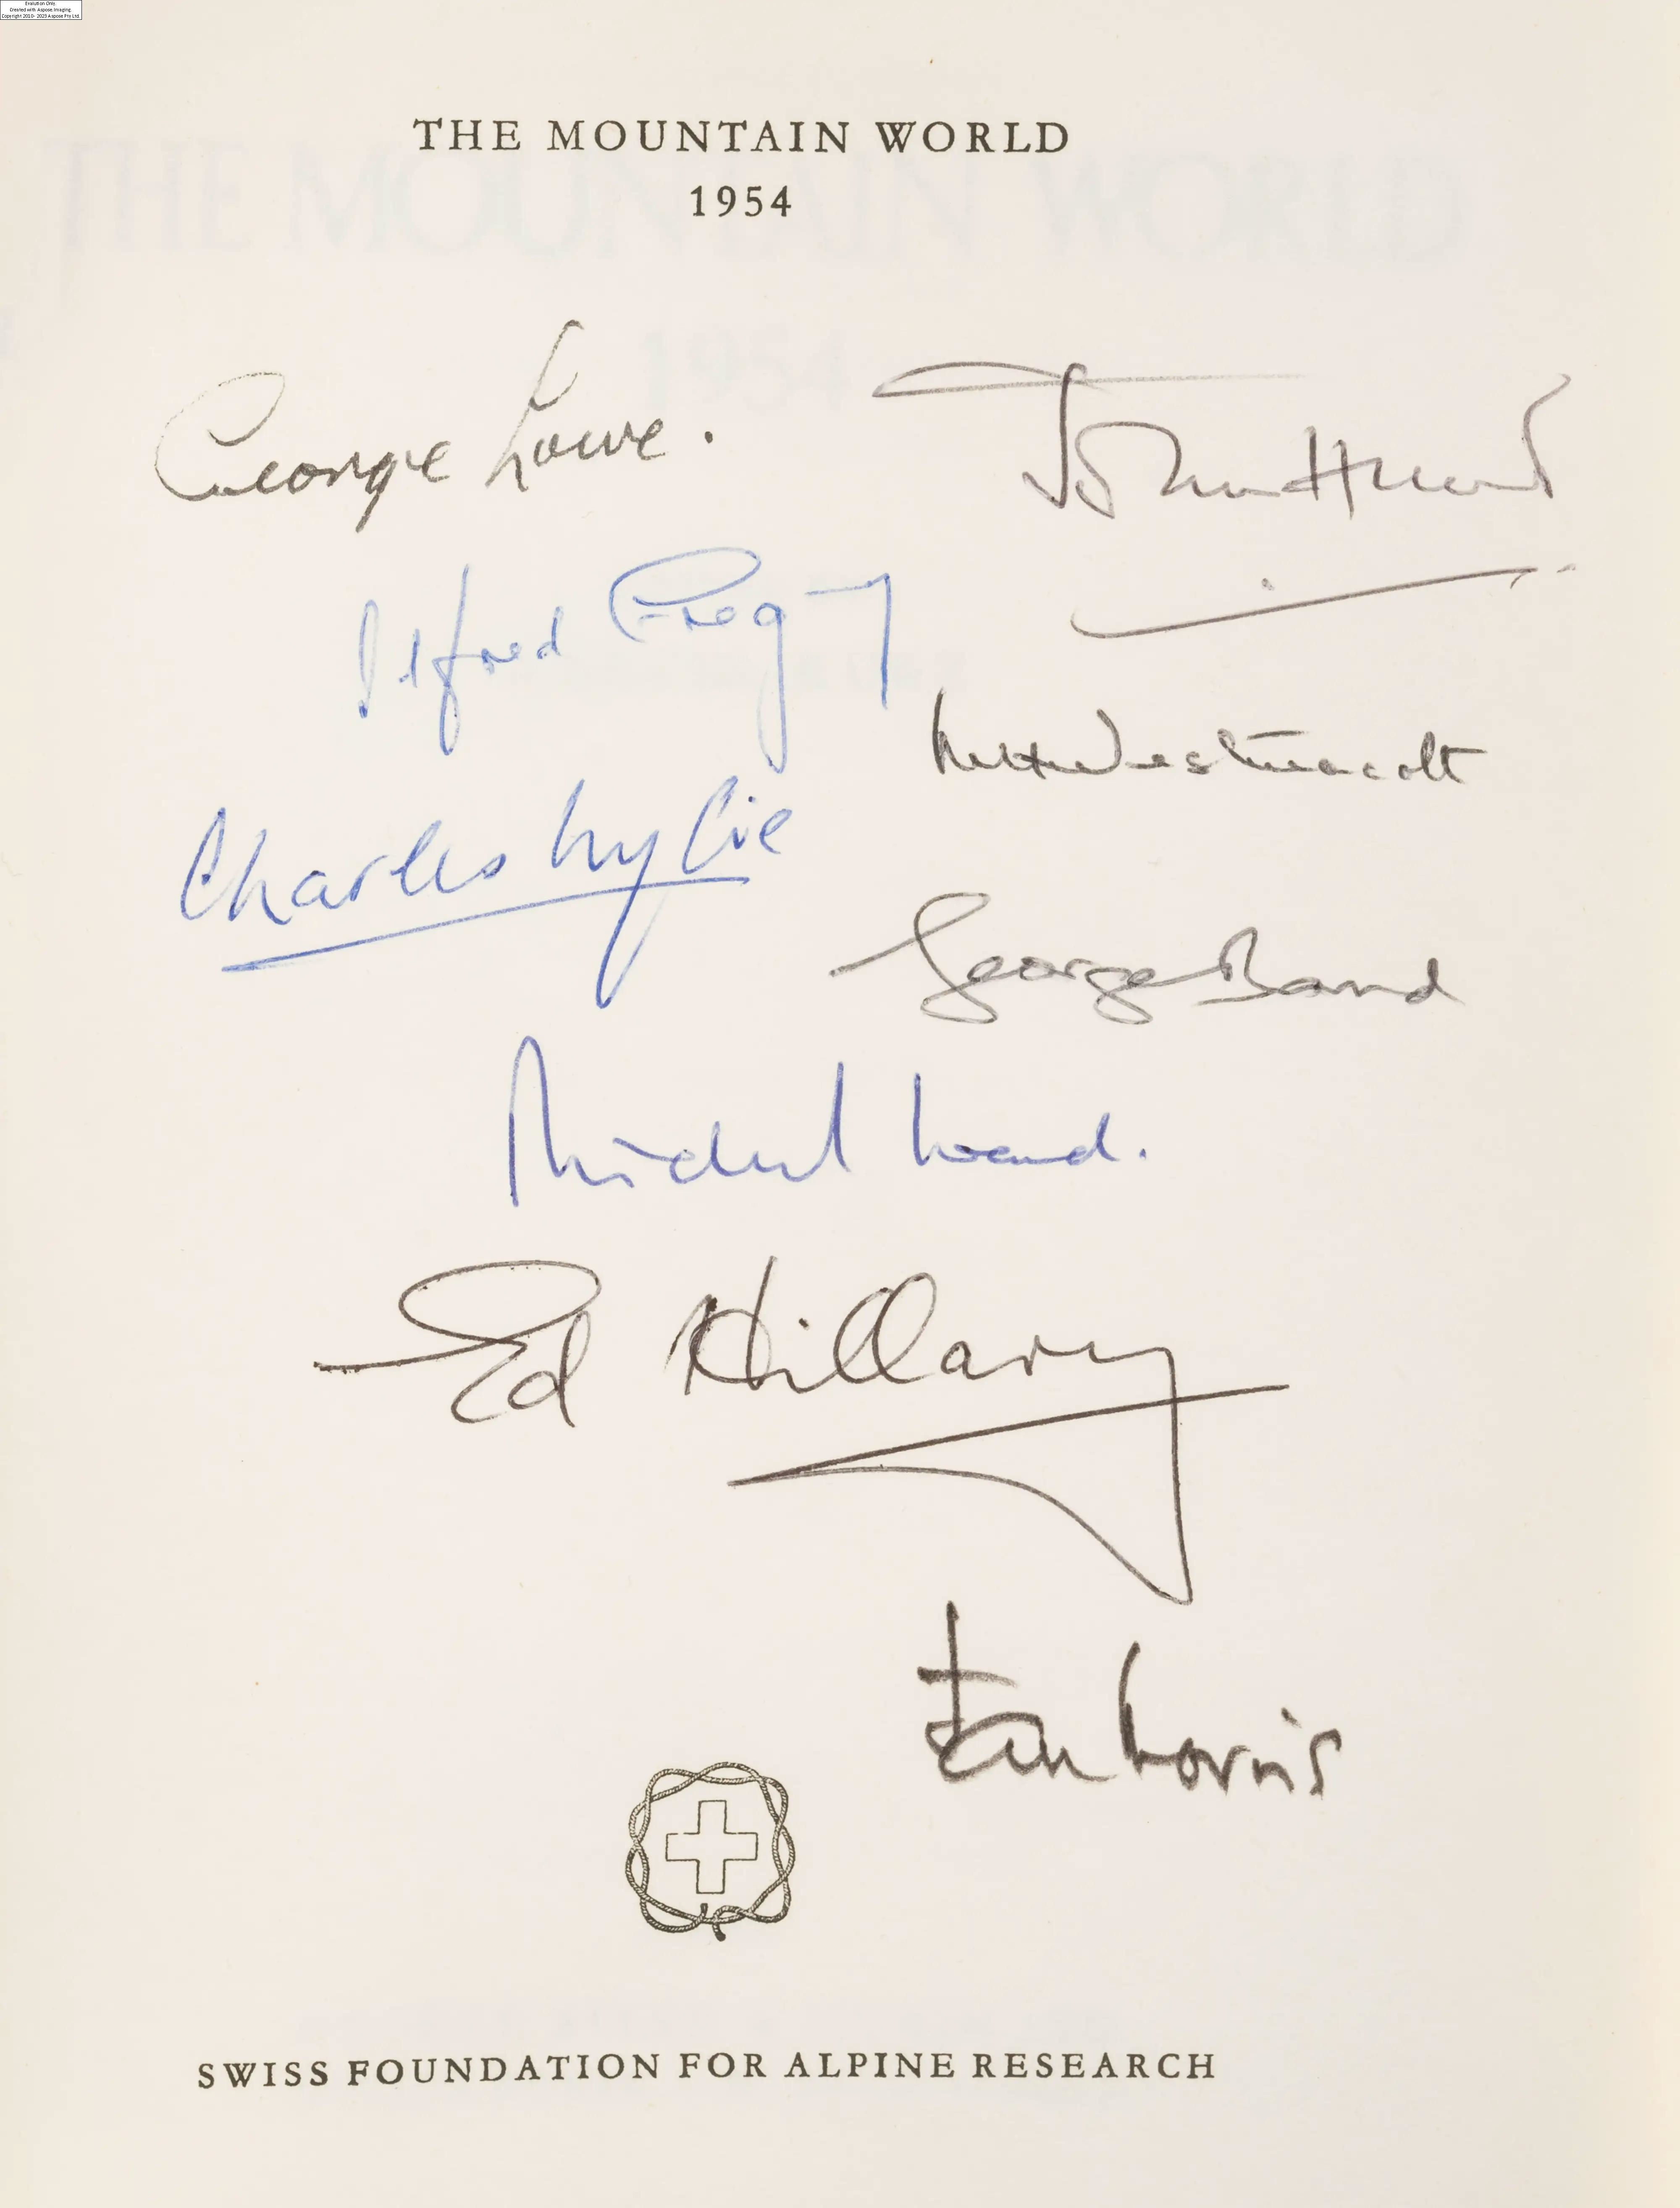 Evaluation Only.
Created with Aspose.Imaging.
Copyright 2010-2023 Aspose Pty Ltd.
THE MOUNTAIN WORLD
1954
George Lowe.
John Hunt
Alfred Gregory
MHWestmacott
Charles Wylie
George Band
Michael Ward.
Ed Hillary
Jan Morris
SWISS FOUNDATION FOR ALPINE RESEARCH